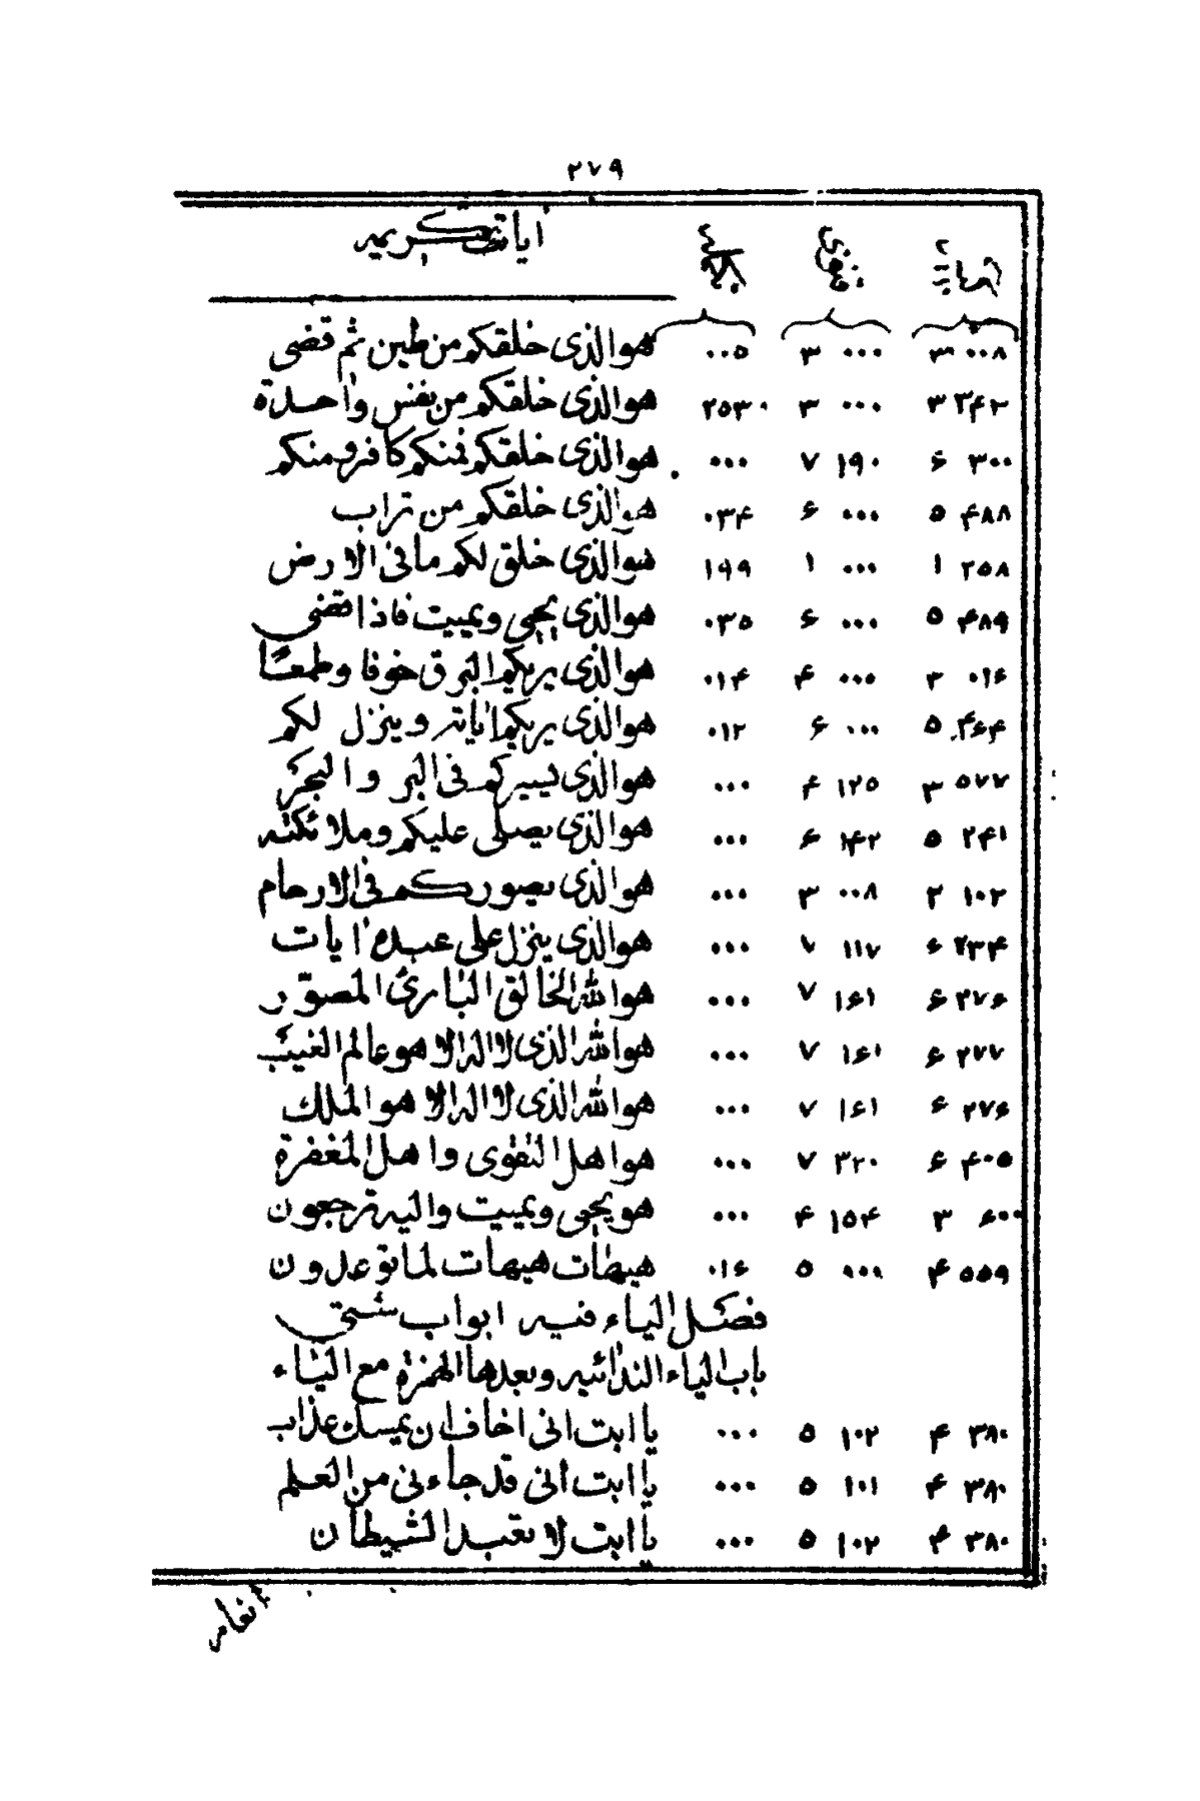 ٢٧٩
آيات كريمه
٣ ٠٠٨ ٣ ٠٠٠ ٠٠٥ هو الذى خلقكم من طين ثم قضى
٣ ٢۴٢ ٣ ٠٠٠ ٢٥٣٠ هو الذى خلقكم من نفس واحدة
۶ ٣٠٠ ٧ ١٩٠ ٠٠٠ هو الذى خلقكم فمنكم كافر ومنكم
٥ ۴٨٨ ۶ ٠٠٠ ٠٣۴ هو الذى خلقكم من تراب
١ ٢٥٨ ١ ٠٠٠ ١٩٩ هو الذى خلق لكم ما فى الارض
٥ ۴٨٩ ۶ ٠٠٠ ٠٣٥ هو الذى يحيى ويميت فاذا قضى
٣ ٠١۶ ۴ ٠٠٠ ٠١۴ هو الذى يريكم البرق خوفا وطمعًا
٥ ۴۶۴ ۶ ٠٠٠ ٠١٢ هو الذى يريكم اياته وينزل لكم
٣ ٥٧٧ ۴ ١٢٥ ٠٠٠ هو الذى يسيركم فى البر والبحر
٥ ٢۴١ ۶ ١۴٢ ٠٠٠ هو الذى يصلى عليكم وملائكته
٢ ١٠٢ ٣ ٠٠٨ ٠٠٠ هو الذى يصوركم فى الارحام
۶ ٢٣۴ ٧ ١١٧ ٠٠٠ هو الذى ينزل على عبده ايات
۶ ٢٧۶ ٧ ١۶١ ٠٠٠ هو الله الخالق البارئ المصوّر
۶ ٢٧٧ ٧ ١۶٠ ٠٠٠ هو الله الذى لا اله الا هو عالم الغيب
۶ ٢٧۶ ٧ ١۶١ ٠٠٠ هو الله الذى لا اله الا هو الملك
۶ ۴٠٥ ٧ ٣٢٠ ٠٠٠ هو اهل التقوى واهل المغفرة
٣ ۶٠٠ ۴ ١٥۴ ٠٠٠ هو يحيى ويميت واليه ترجعون
۴ ٥٥٩ ٥ ٠٠٠ ٠١۶ هيهات هيهات لما توعدون
فصل الياء فيه ابواب شتى
باب الياء الندائيه وبعدها الهمزة مع الياء
۴ ٣٨٠ ٥ ١٠٢ ٠٠٠ يا ابت انى اخاف ان يمسك عذاب
۴ ٣٨٠ ٥ ١٠١ ٠٠٠ يا ابت انى قد جاءنى من العلم
۴ ٣٨٠ ٥ ١٠٢ ٠٠٠ يا ابت لا تعبد الشيطان